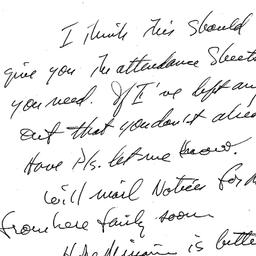 I think this should
give you the attendance sheets
you need. If I've left an
out that you don't alrea
Have Pls. let me know.
Will mail Notices for
from here fairly soon
is bette